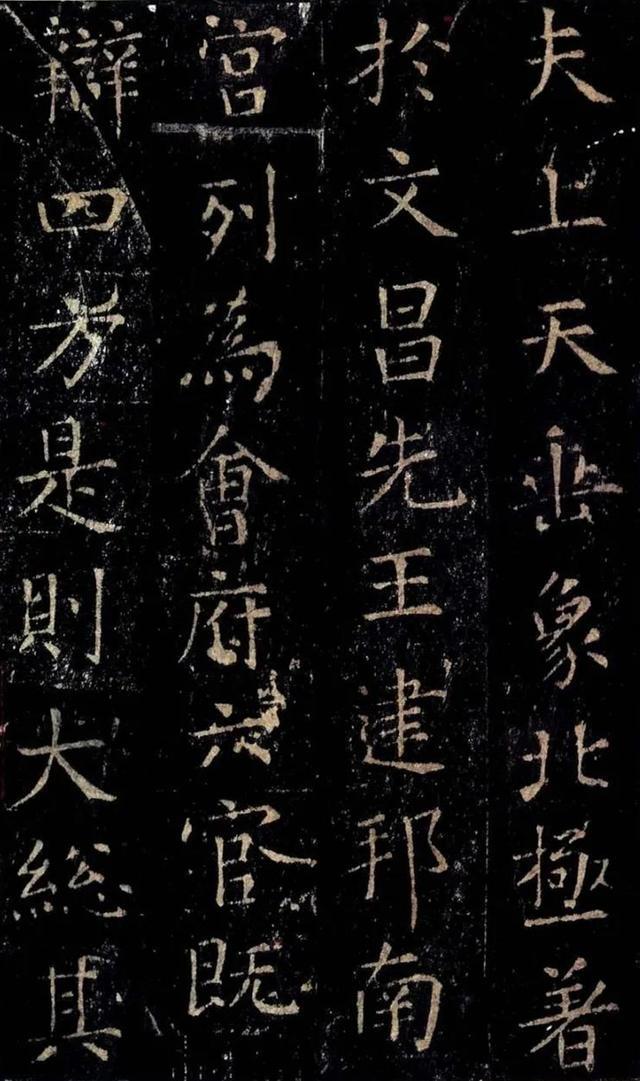 夫上天垂象北極著
於文昌先王建邦南
宮列為會府六官既
辯四方是則大總其